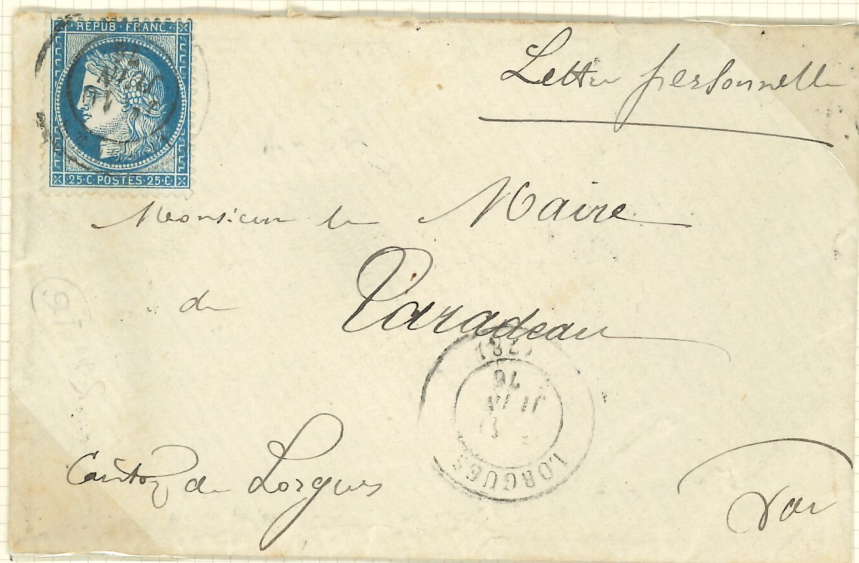 REPUB·FRANC
25·C·POSTES·25·C
Lettre personnelle
Monsieur le Maire
de Taradeau
LORGUES
76
Canton de Lorgues
Var